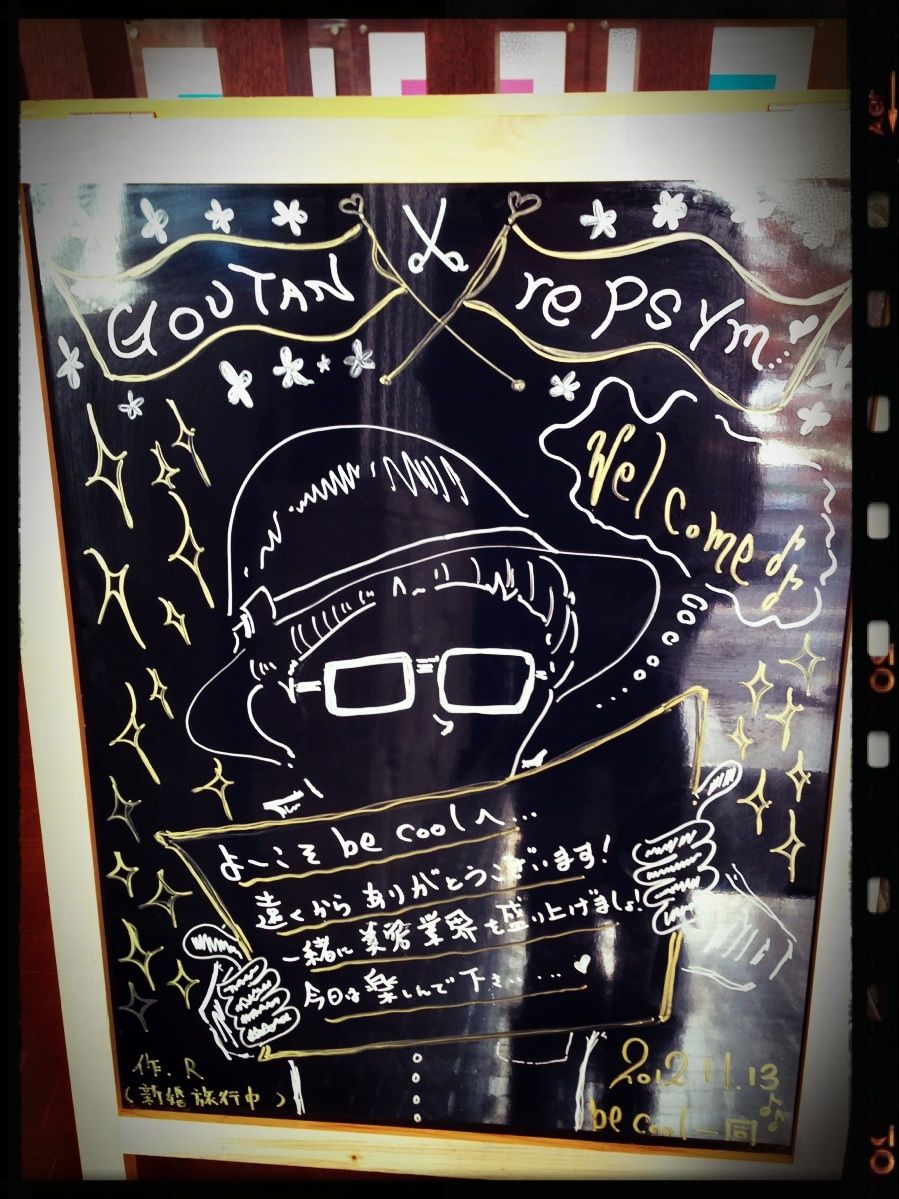 GOUTAN
re PSYm...
Welcome
ようこそ be coolへ...
遠くから ありがとうございます!
一緒に 美容業界を盛り上げましょ!
今日は楽しんで下さい...
作. R
(新婚旅行中)
2012.11.13
be cool一同